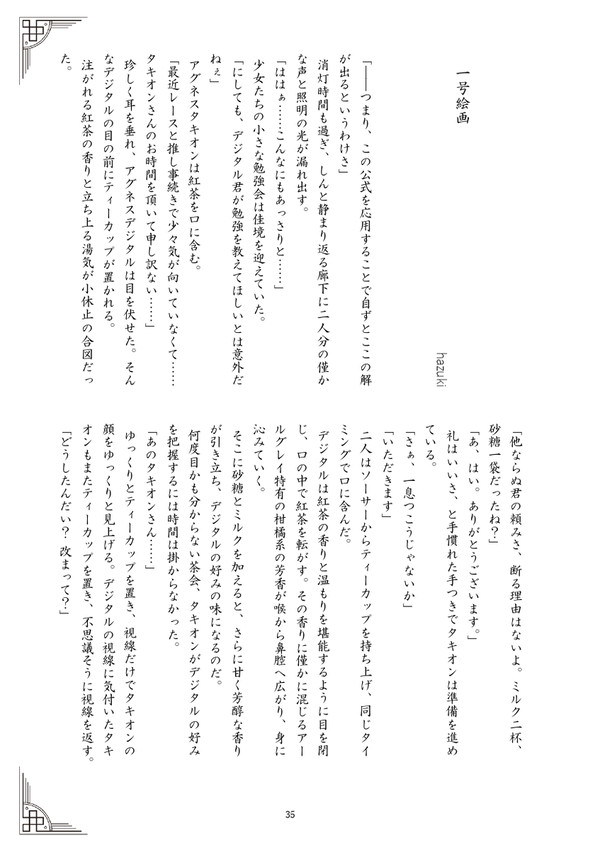 一号絵画
hazuki
「――つまり、この公式を応用することで自ずとここの解
が出るというわけさ」
消灯時間も過ぎ、しんと静まり返る廊下に二人分の僅か
な声と照明の光が漏れ出す。
「ははぁ……こんなにもあっさりと……」
少女たちの小さな勉強会は佳境を迎えていた。
「にしても、デジタル君が勉強を教えてほしいとは意外だ
ねぇ」
アグネスタキオンは紅茶を口に含む。
「最近レースと推し事続きで少々気が向いていなくて……
タキオンさんのお時間を頂いて申し訳ない……」
珍しく耳を垂れ、アグネスデジタルは目を伏せた。そん
なデジタルの目の前にティーカップが置かれる。
注がれる紅茶の香りと立ち上る湯気が小休止の合図だっ
た。
「他ならぬ君の頼みさ、断る理由はないよ。ミルク二杯、
砂糖一袋だったね？」
「あ、はい。ありがとうございます。」
礼はいいさ、と手慣れた手つきでタキオンは準備を進め
ている。
「さぁ、一息つこうじゃないか」
「いただきます」
二人はソーサーからティーカップを持ち上げ、同じタイ
ミングで口に含んだ。
デジタルは紅茶の香りと温もりを堪能するように目を閉
じ、口の中で紅茶を転がす。その香りに僅かに混じるアー
ルグレイ特有の柑橘系の芳香が喉から鼻腔へ広がり、身に
沁みていく。
そこに砂糖とミルクを加えると、さらに甘く芳醇な香り
が引き立ち、デジタルの好みの味になるのだ。
何度目かも分からない茶会、タキオンがデジタルの好み
を把握するには時間は掛からなかった。
「あのタキオンさん……」
ゆっくりとティーカップを置き、視線だけでタキオンの
顔をゆっくりと見上げる。デジタルの視線に気付いたタキ
オンもまたティーカップを置き、不思議そうに視線を返す。
「どうしたんだい？　改まって？」
35